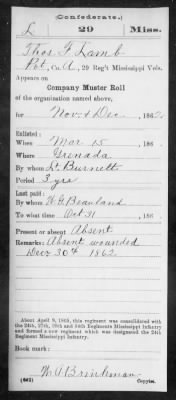 (Confederate.)
L 29 Miss.
Thos F Lamb
Pvt, Co. A, 29 Reg't Mississippi Vols.
Appears on
Company Muster Roll
of the organization named above,
for Nov & Dec, 1862.
Enlisted:
When Mar 15, 186
Where Grenada
By whom Lt Burnett
Period 3 yrs
Last paid:
By whom W G Beauland
To what time Oct 31, 186
Present or absent Absent
Remarks: Absent wounded
Dec 30th 1862
About April 9, 1865, this regiment was consolidated with
the 24th, 27th, 30th and 34th Regiments Mississippi Infantry
and formed a new regiment which was designated the 24th
Regiment Mississippi Infantry.
Book mark:
W. A. Brinkman
(642) Copyist.